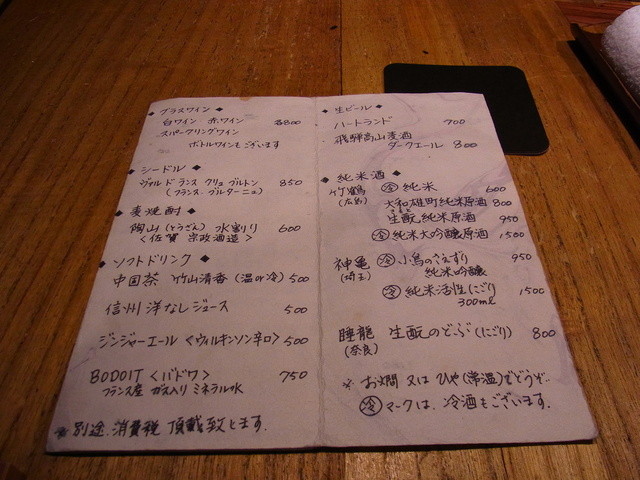 ◆ グラスワイン ◆
白ワイン 赤ワイン 各800
スパークリングワイン
ボトルワインもございます
◆ シードル ◆
ヴァル ド ランス クリュ ブルトン 850
(フランス ブルターニュ)
◆ 麦焼酎 ◆
陶山(とうざん) 水割り 600
<佐賀 宗政酒造>
◆ ソフトドリンク ◆
中国茶 竹山清香 (温or冷) 500
信州 洋なしジュース 500
ジンジャーエール <ウィルキンソン辛口> 500
BODOIT <バドワ> 750
フランス産 ガス入り ミネラル水
※ 別途 消費税 頂戴致します。
◆ 生ビール ◆
ハートランド 700
飛騨高山麦酒
ダークエール 800
◆ 純米酒 ◆
竹鶴 (冷) 純米 600
(広島) 大和雄町純米原酒 800
生酛純米原酒 950
(冷)純米大吟醸原酒 1500
神亀 (冷)小鳥のさえずり 950
(埼玉) 純米吟醸
(冷)純米活性にごり 1500
300ml
睡龍 生酛のどぶ(にごり) 800
(奈良)
※ お燗 又は ひや(常温)でどうぞ。
(冷)マークは、冷酒もございます。